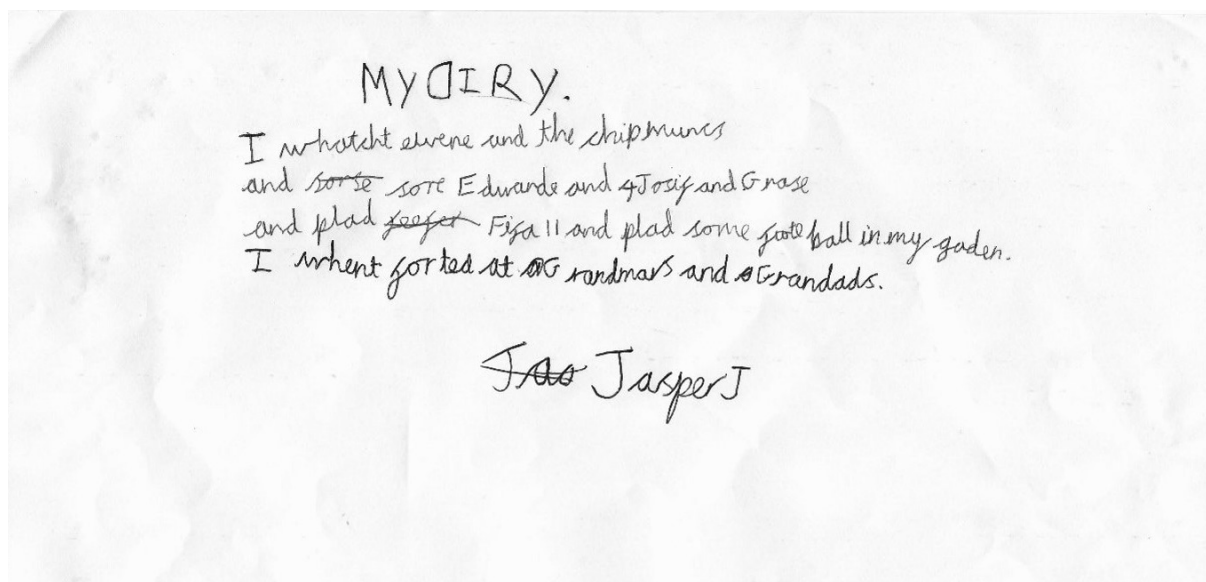 MY DIRY.
I whatcht elvene and the chipmuncs
and sorse sore Edwarde and Josif and Grase
and plad Fifa 11 and plad some foote ball in my gaden.
I whent for tea at Grandmars and Grandads.
Jas JasperJ